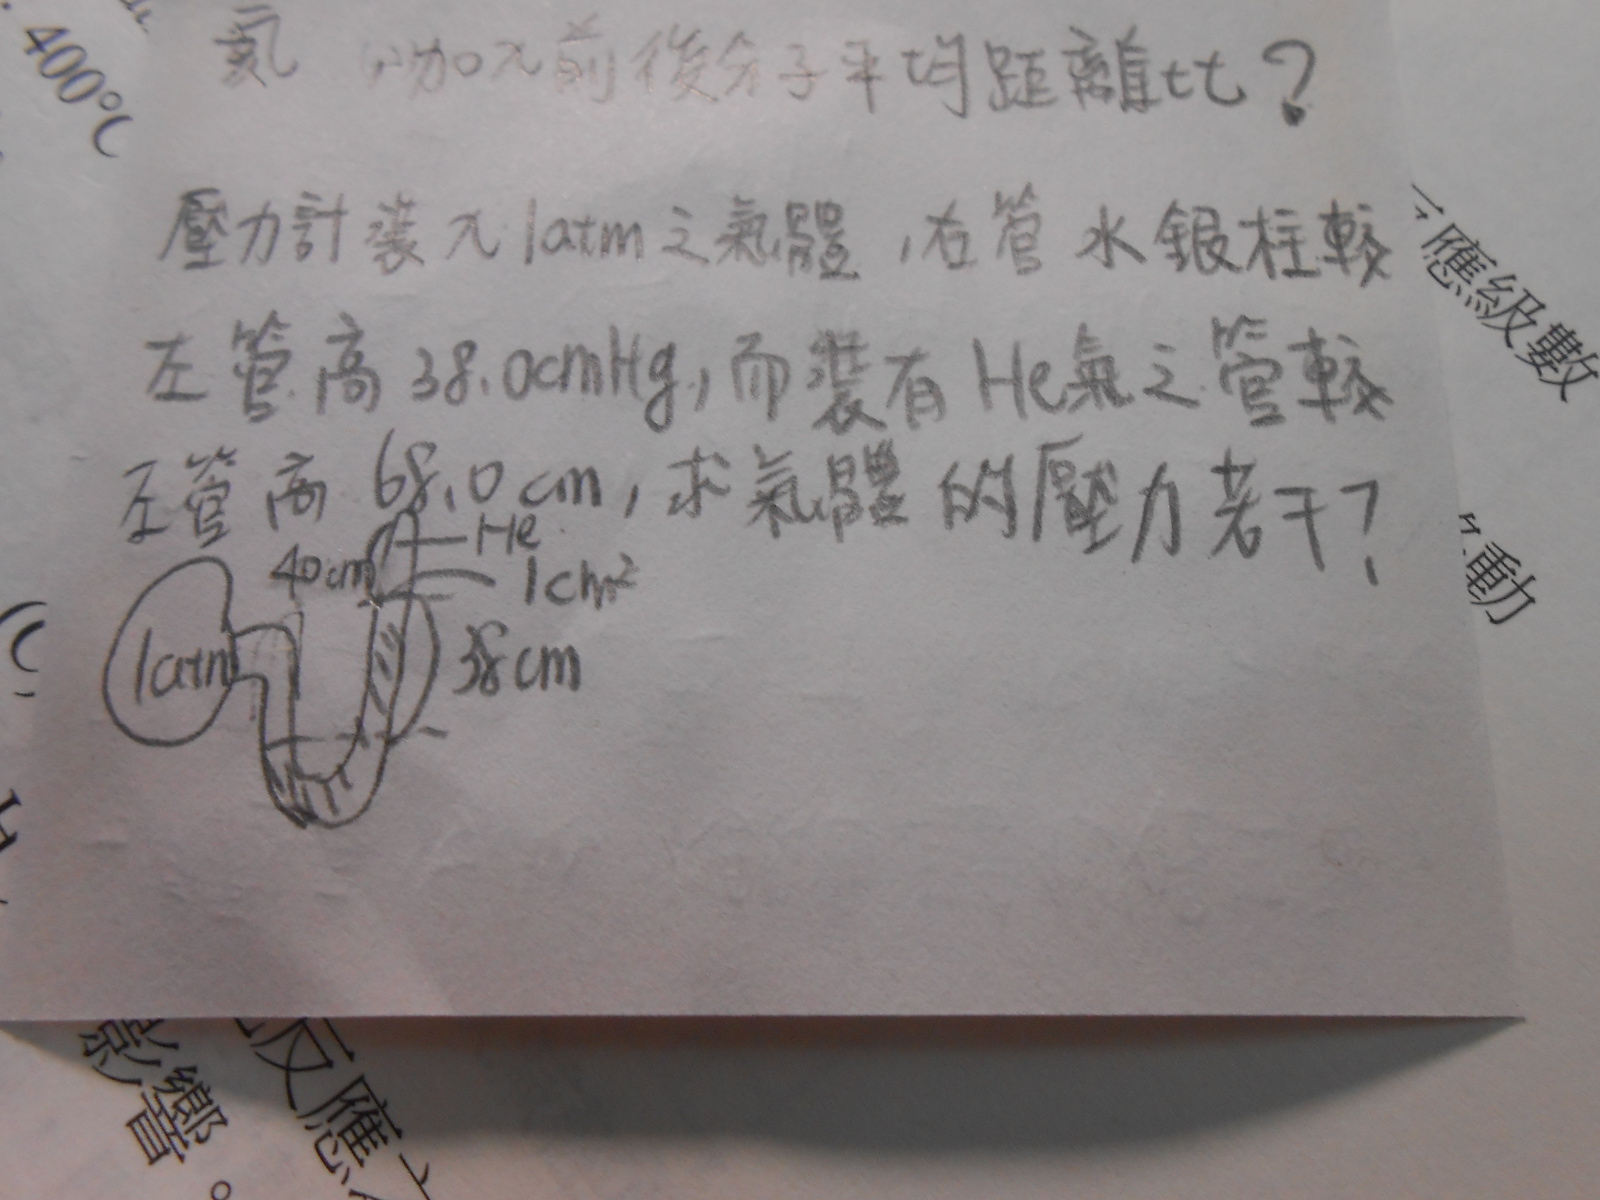 400℃
氦 (1)加入前後分子平均距離比?
壓力計裝入1atm之氣體,右管水銀柱較
左管高38.0cmHg,而裝有He氣之管較
左管高68.0cm,求氣體的壓力若干?
He
40cm
1cm²
1atm
38cm
應級數
動
反應
影響。